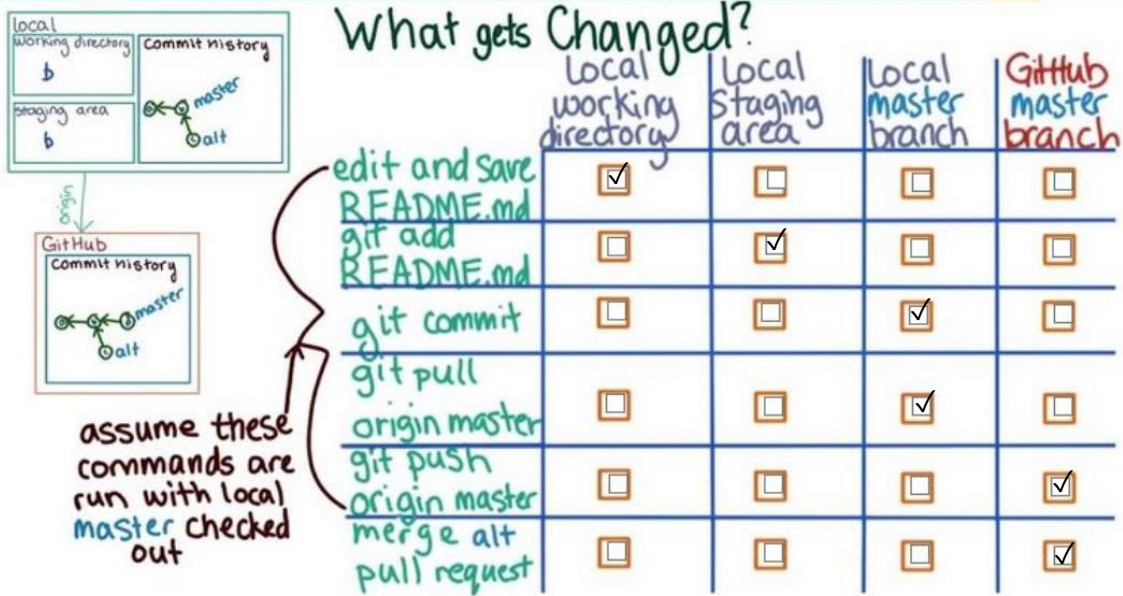 What gets Changed?
local
working directory
b
staging area
b
Commit History
master
alt
origin
GitHub
Commit History
master
alt
assume these
commands are
run with local
master checked
out
Local
working
directory
Local
Staging
area
Local
master
branch
GitHub
master
branch
edit and save
README.md
git add
README.md
git commit
git pull
origin master
git push
origin master
merge alt
pull request